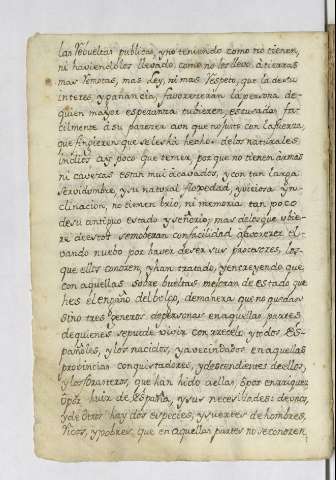 las Rebueltas publicas, y no teniendo como no tienen,
ni haviendoles llevado, como no les llevo, a tierras
mas remotas, mas ley, ni mas respeto, que la de su
interes y ganancia, favoreceran la persona de
quien mayor esperanza tubieren, escusados fa-
cilmente a su parecer aun que no justo con la fuerza,
que fingieren que se les ha hecho: de los naturales
indios ay poco que temer, por que no tienen armas
ni caveças estan mui acavados, y con tan larga
servidumbre, y su natural floxedad, y viciosa yn-
clinacion, no tienen brio, ni memoria tan poco
de su antiguo estado y señorio, mas de los que ubie-
re de estos se moberan con facilidad a favorecer el
vando nuebo por haver de ser sus protectores, los
que ellos conocen, y han tratado, y en creyendo que
con aquellas sobre bueltas mejoran de estado que
hes el engaño del bulgo, de manera que no quedan
sino tres generos de personas en aquellas partes
de quienes se puede vivir con recelo: y todos es-
pañoles, y los nacidos, y avecindados en aquellas
provincias conquistadores, y descendientes de ellos,
y los forasteros, que han hido a ellas, o por enriquezer
o por huir de españa, y sus necesidades: de unos,
y de otros hay dos especies, y suertes de hombres,
ricos, y pobres, que en aquellas partes no se conocen